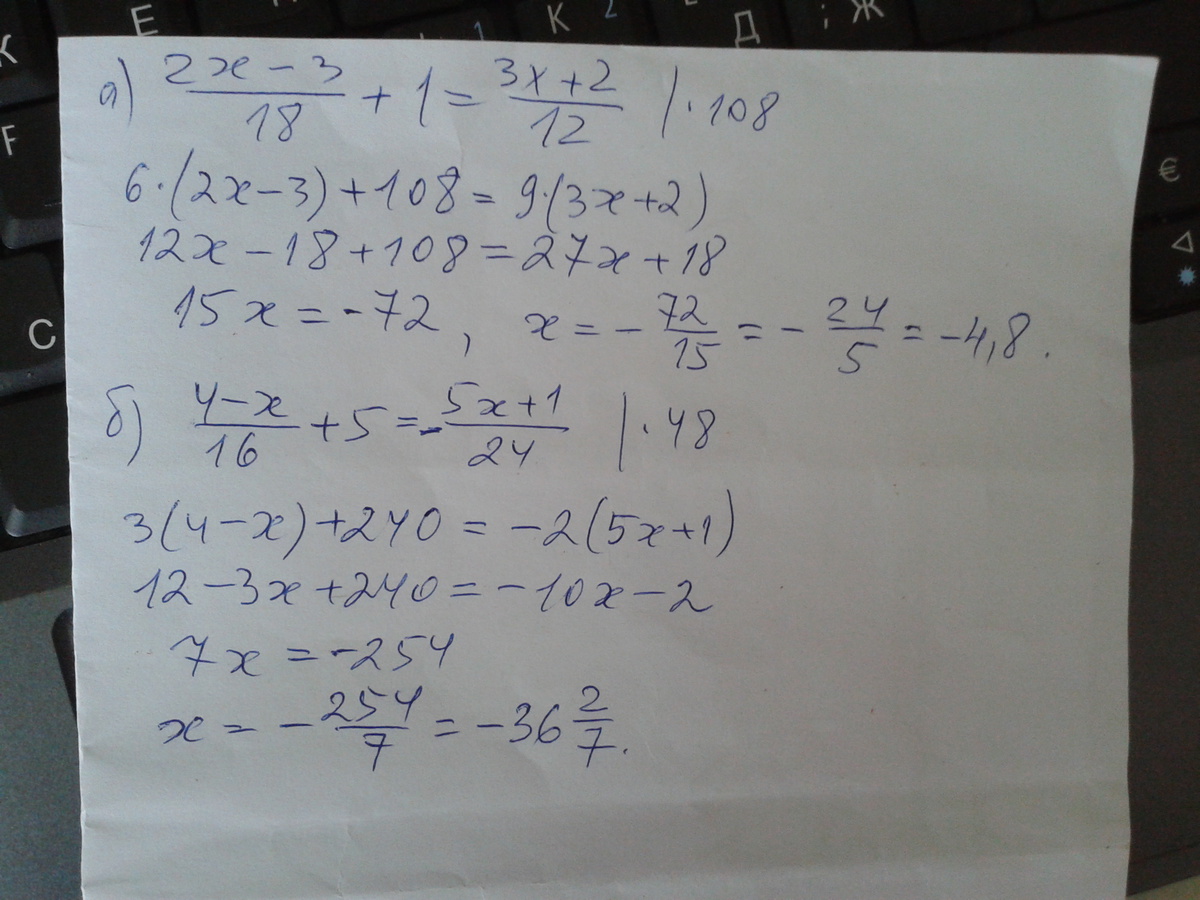 E
K
2
Д
; Ж
К
1
F
€
C
а) (2x - 3)/18 + 1 = (3x + 2)/12 | · 108
6·(2x - 3) + 108 = 9·(3x + 2)
12x - 18 + 108 = 27x + 18
15x = -72, x = - 72/15 = - 24/5 = -4,8.
б) (4 - x)/16 + 5 = - (5x + 1)/24 | · 48
3(4 - x) + 240 = -2(5x + 1)
12 - 3x + 240 = -10x - 2
7x = -254
x = - 254/7 = -36 2/7.